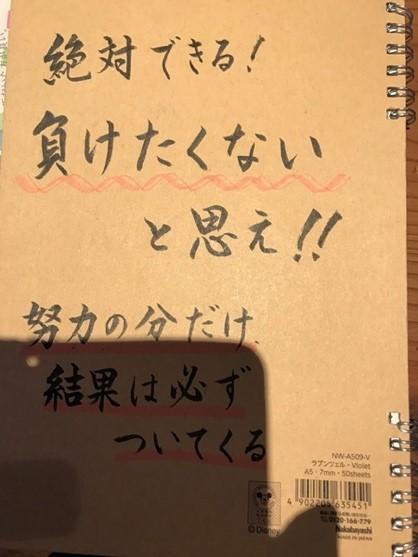 絶対できる!
負けたくない
と思え!!
努力の分だけ
結果は必ず
ついてくる
NW-A509-V
ラプンツェル・Violet
A5・7mm・50sheets
4 902205 635451
TEL 0120-166-779
Nakabayashi
MADE IN JAPAN
©Disney